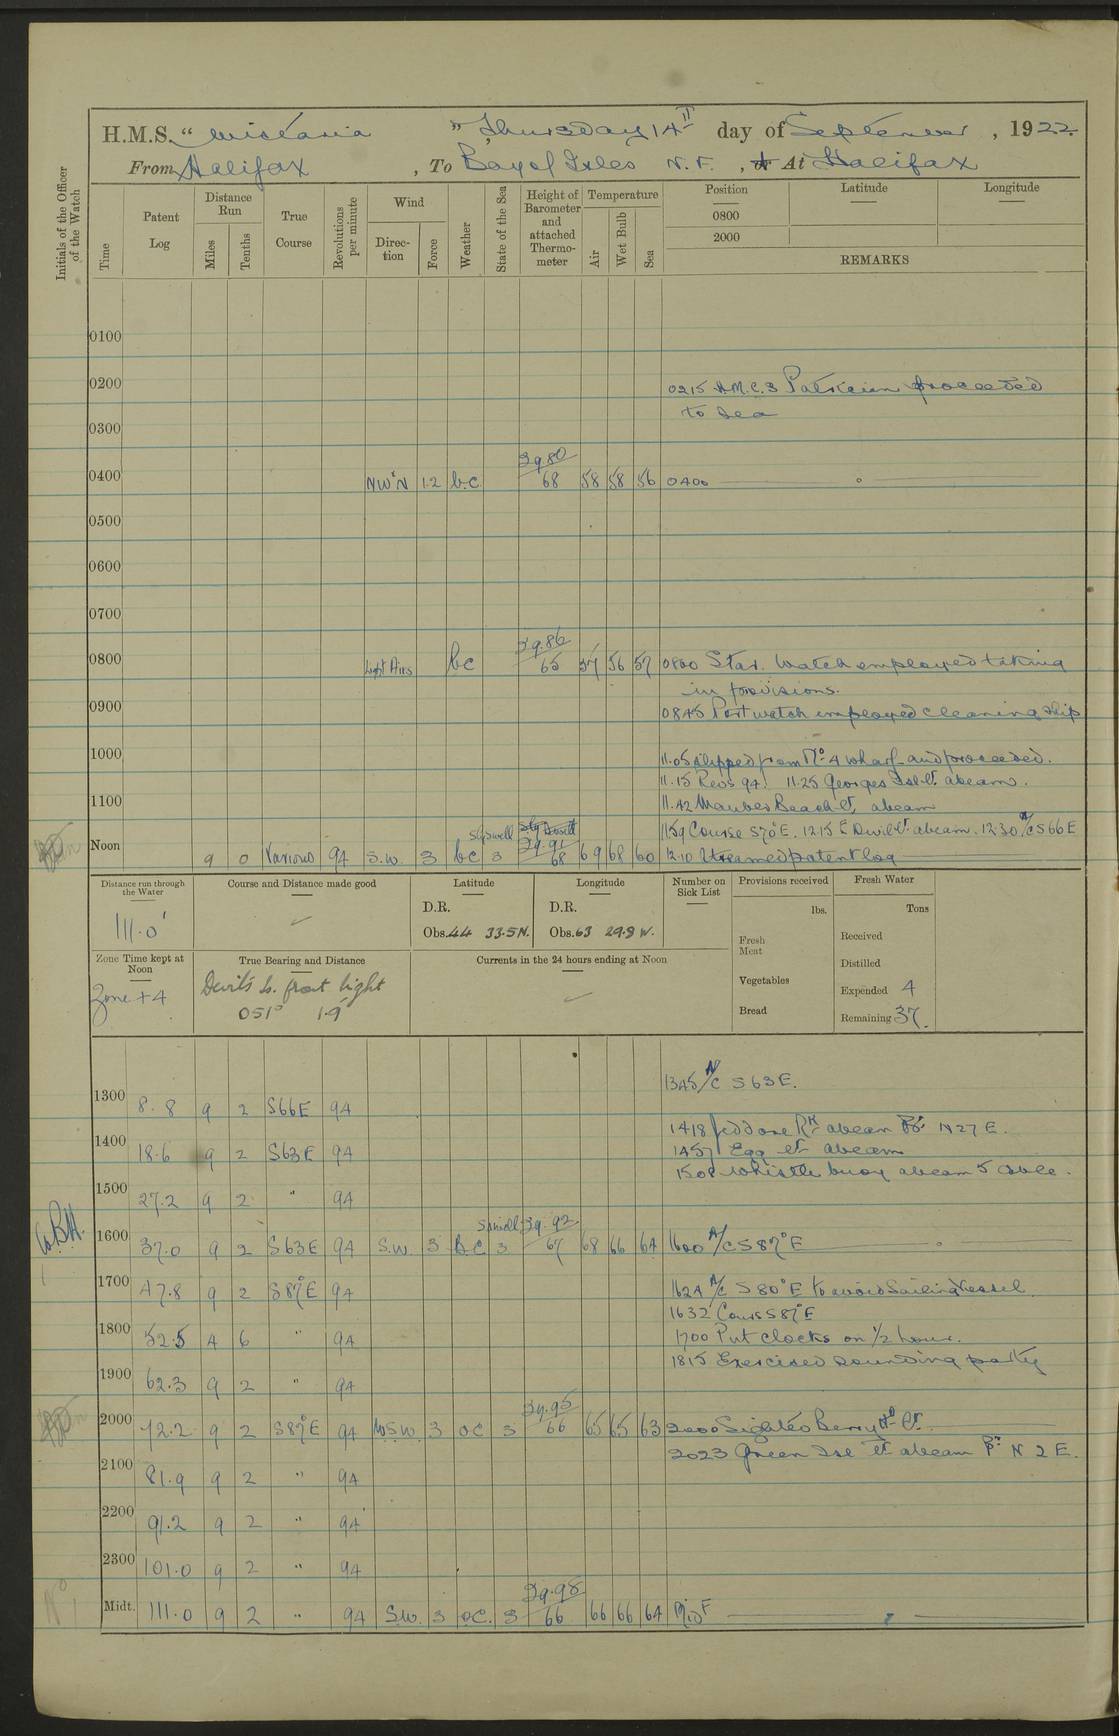 H.M.S. "Wistaria" Thursday 14th day of September, 1922
From Halifax, To Bay of Isles N.F., At Halifax
Initials of the Officer of the Watch
Time
Patent Log
Distance Run
Miles
Tenths
True Course
Revolutions per minute
Wind
Direction
Force
Weather
State of the Sea
Height of Barometer and attached Thermometer
Temperature
Air
Wet Bulb
Sea
Position
0800
2000
Latitude
Longitude
REMARKS
0100
0200
0215 H.M.C.S Patrician proceeded
to sea
0300
0400 NW'N 1.2 b.c. 29.80 68 58 58 56 0400
0500
0600
0700
0800 Light Airs bc 29.86 65 57 56 57 0800 Star. Watch employed taking
in provisions.
0900
0845 Port watch employed cleaning ship
1000
11.05 Slipped from No 4 wharf and proceeded.
11.15 Revs 94. 11.25 Georges Isle Lt abeam.
1100
11.42 Maubes Beach Lt. abeam
1159 Course S70°E. 1215 Devil Lt. abeam. 1230 A/C S66E
Noon 9 0 Various 94 S.W. 3 bc Slyswell 3 29.91 68 69 68 60 12.10 Streamed patent log
Distance run through the Water
111.0'
Course and Distance made good
Latitude
D.R.
Obs. 44 33.5 N.
Longitude
D.R.
Obs. 63 29.9 W.
Number on Sick List
Provisions received
lbs.
Fresh Meat
Vegetables
Bread
Fresh Water
Tons
Received
Distilled
Expended 4
Remaining 37.
Zone Time kept at Noon
Zone +4
True Bearing and Distance
Devil's Is. front light
051° 1.9'
Currents in the 24 hours ending at Noon
1345 A/C S63E.
1300 8.8 9 2 S66E 94
1418 Jeddore Rk abeam N27E.
1400 18.6 9 2 S63E 94
1457 Egg Lt abeam
1508 Whistle buoy abeam 5 cable.
1500 27.2 9 2 " 94
1600 37.0 9 2 S63E 94 S.W. 3 B.C. Swell 3 29.92 67 68 66 64 1600 A/C S87°E
1700 47.8 9 2 S87°E 94
1624 A/C S80°E to avoid Sailing Vessel
1632 Cours S87°E
1800 52.5 4 6 " 94
1700 Put clocks on 1/2 hour.
1815 Exercised sounding party
1900 62.3 9 2 " 94
2000 72.2 9 2 S87°E 94 WSW 3 oc 3 29.95 66 65 65 63 2000 Sighted Berry Hd Lt.
2023 Green Isle Lt abeam N 2 E.
2100 81.9 9 2 " 94
2200 91.2 9 2 " 94
2300 101.0 9 2 " 94
Midt. 111.0 9 2 " 94 S.W. 3 oc. 3 29.98 66 66 66 64